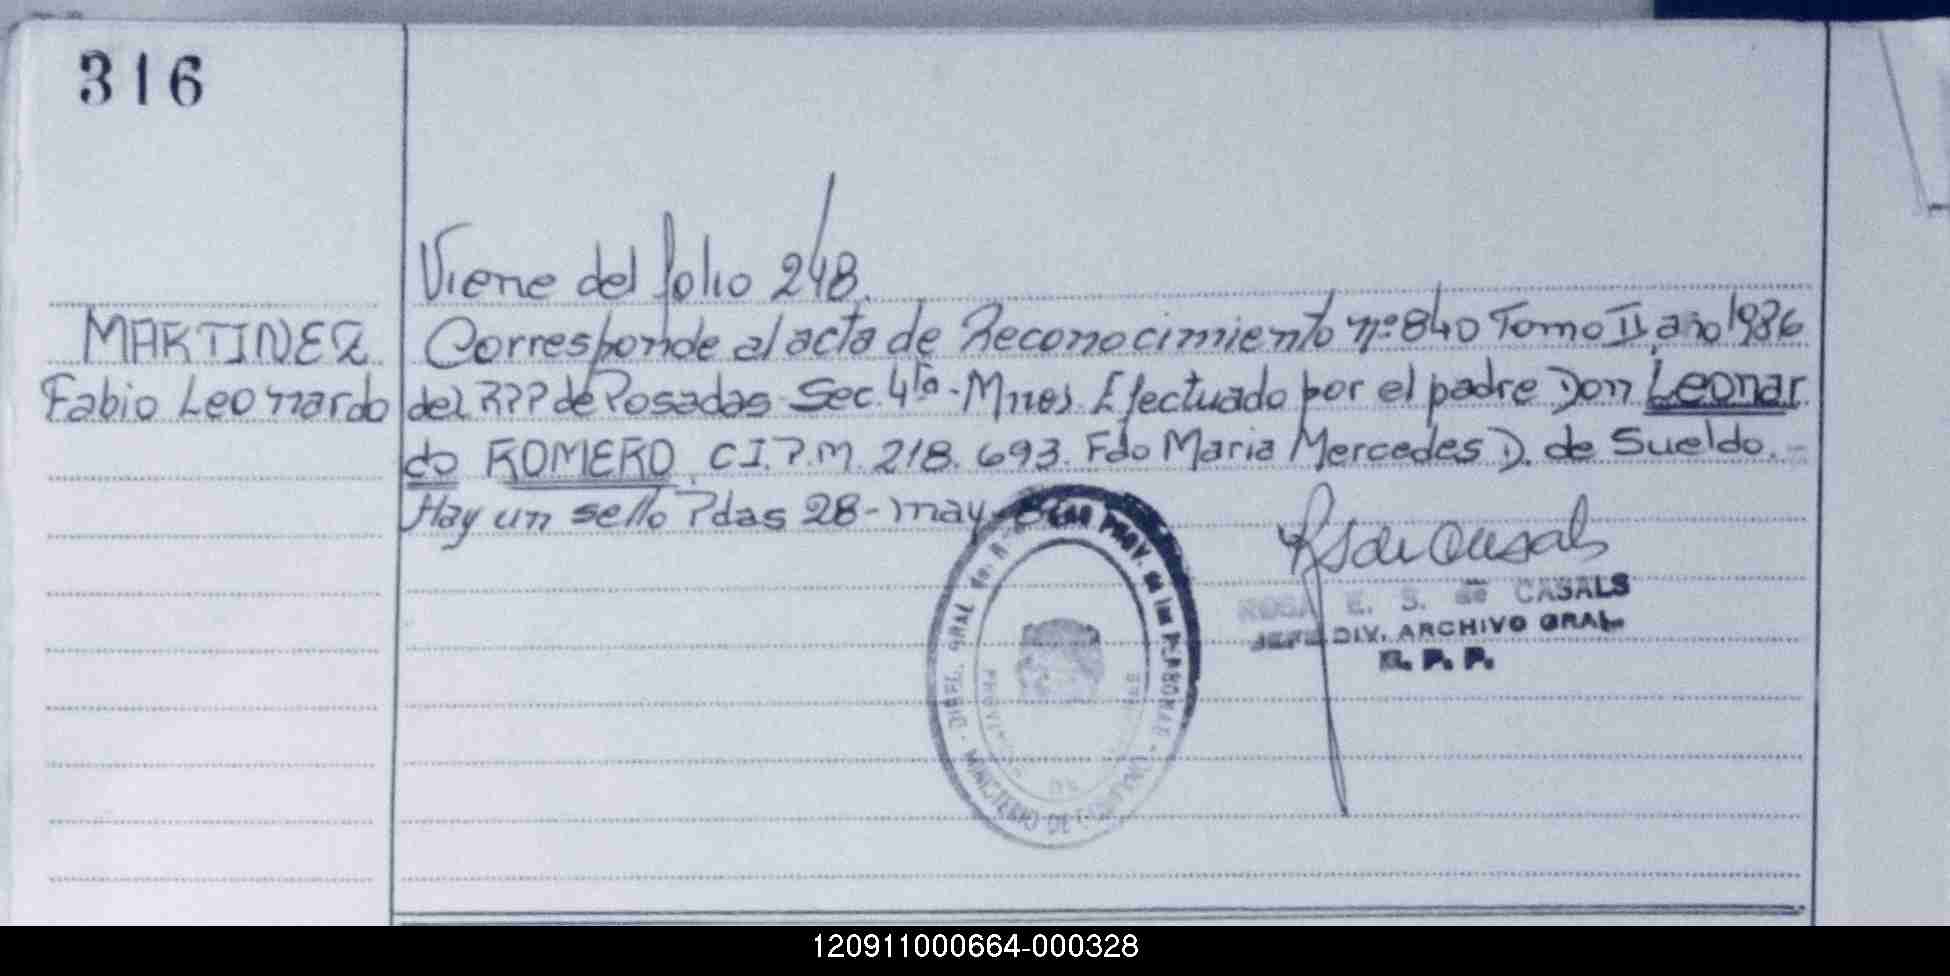 316
Viene del folio 248.
MARTINEZ
Fabio Leonardo
Corresponde al acta de Reconocimiento nº 840 Tomo II, año 1986
del RPP de Posadas Sec. 4ta - Mnes. Efectuado por el padre Don Leonar
do ROMERO, C.I.P.M. 218.693. Fdo Maria Mercedes D. de Sueldo.-
Hay un sello Pdas 28-may-
ROSA E. S. de CASALS
JEFE DIV. ARCHIVO GRAL.
R. P. P.
GRAL PROV. de las PERSONAS
MINISTERIO DE
PROVINCIA
DE
120911000664-000328